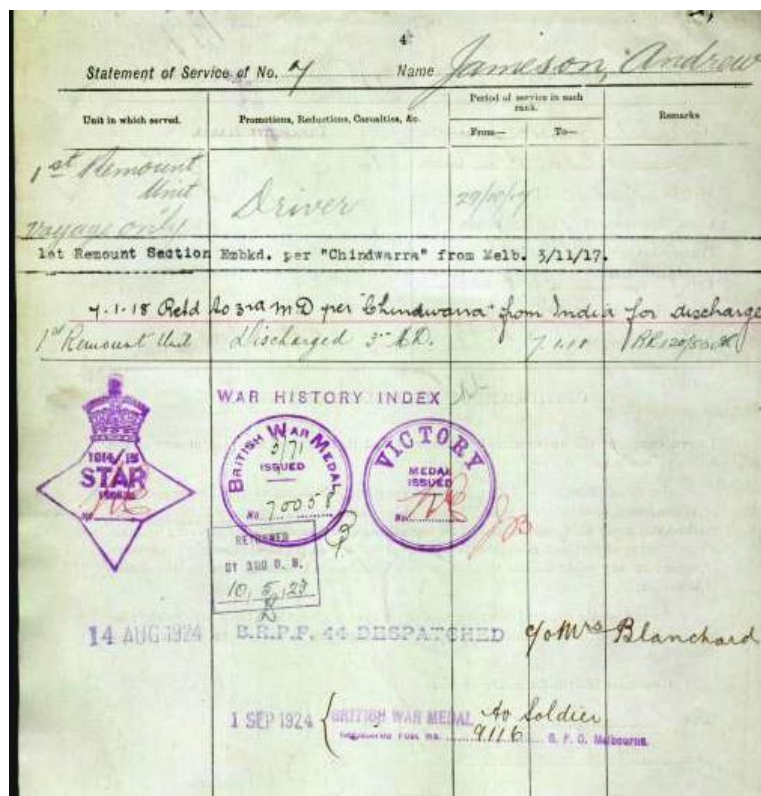 4
Statement of Service of No. 7 Name Jameson, Andrew
Unit in which served.
Promotions, Reductions, Casualties, &c.
Period of service in each rank.
From—
To—
Remarks
1st Remount Unit
voyage only
Driver
1st Remount Section Embkd. per "Chindwarra" from Melb. 3/11/17.
7.1.18 Retd to 3rd M D per "Chindwarra" from India for discharge
1st Remount Unit Discharged 3rd M.D. 7.1.18
WAR HISTORY INDEX
1914/15
STAR
ISSUED
No.
BRITISH WAR MEDAL
3/71
ISSUED
No. 70058
VICTORY
MEDAL
ISSUED
No.
JB
RETURNED
BY 3RD D. B.
10, 5, 23
14 AUG 1924 B.R.P.F. 44 DESPATCHED c/o Mrs Blanchard
1 SEP 1924 { BRITISH WAR MEDAL to Soldier
REGISTERED POST No. 9116 G. P. O. Melbourne.